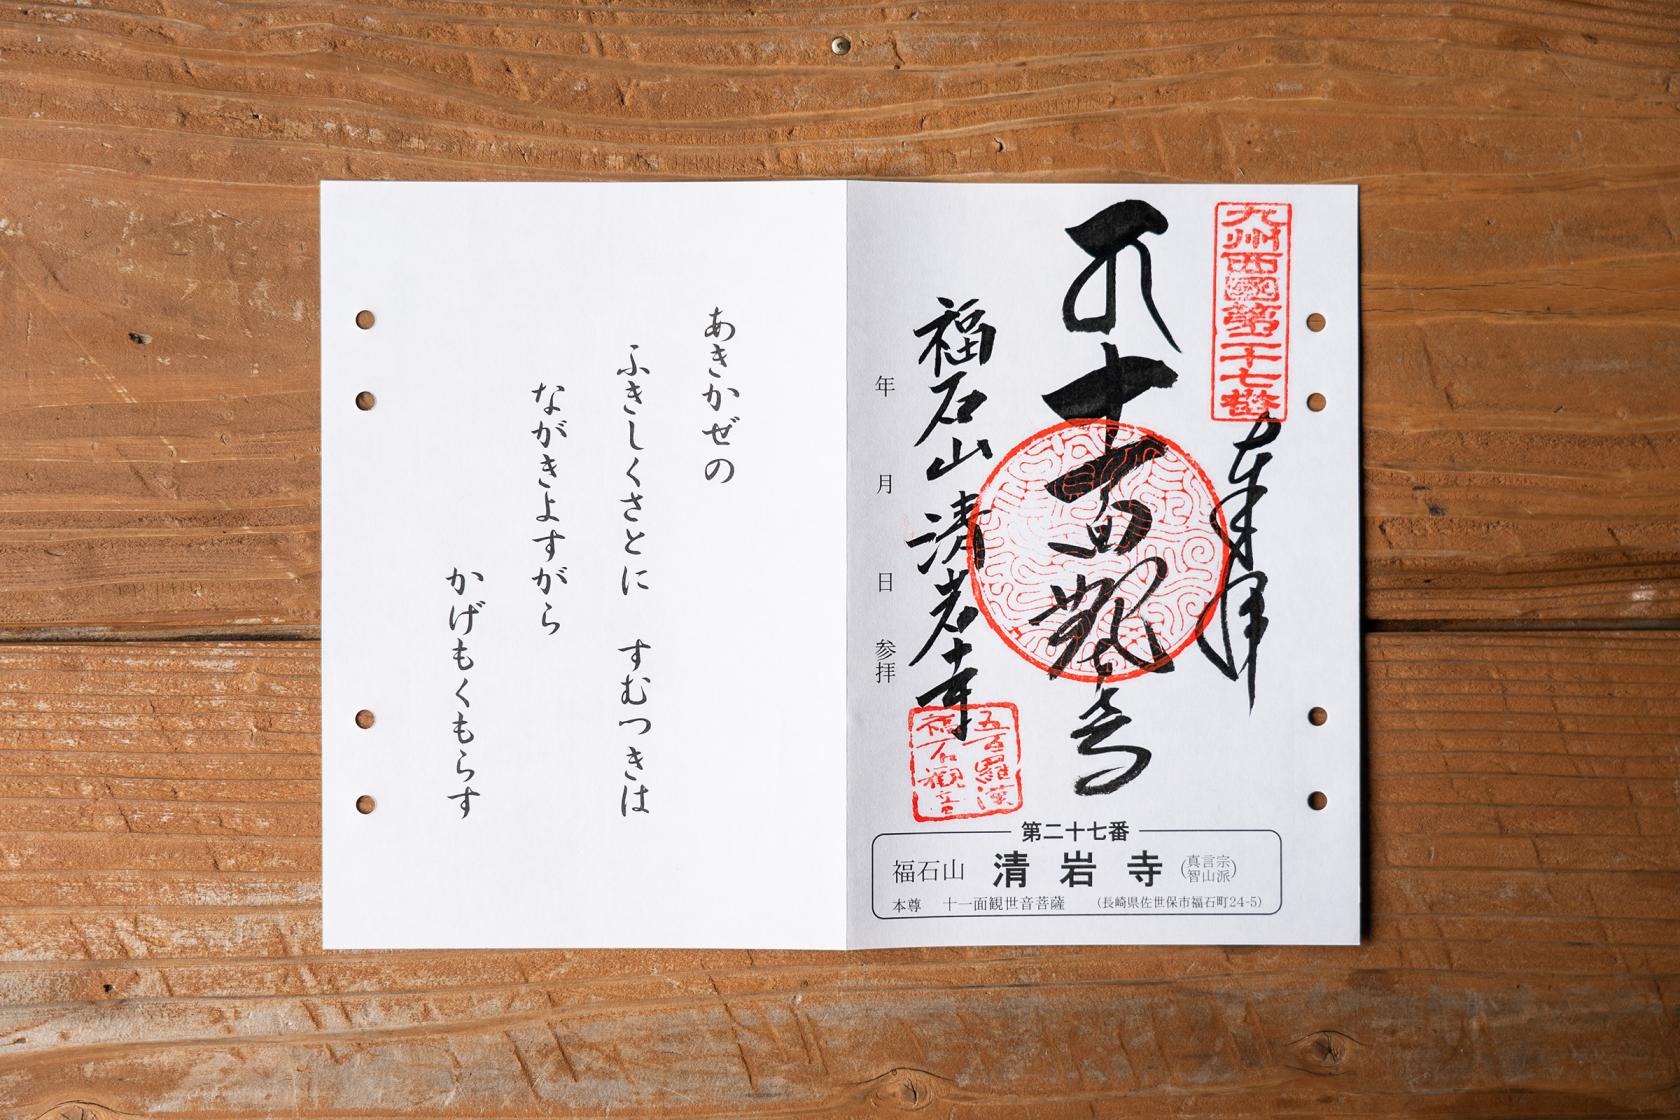 九州西國第二十七番
奉拝
十一面観音
福石山清岩寺
五百羅漢
福石観音
年 月 日 参拝
第二十七番
福石山 清岩寺 (真言宗 智山派)
本尊 十一面観世音菩薩 (長崎県佐世保市福石町24-5)
あきかぜの
ふきしくさとに すむつきは
ながきよすがら
かげもくもらす